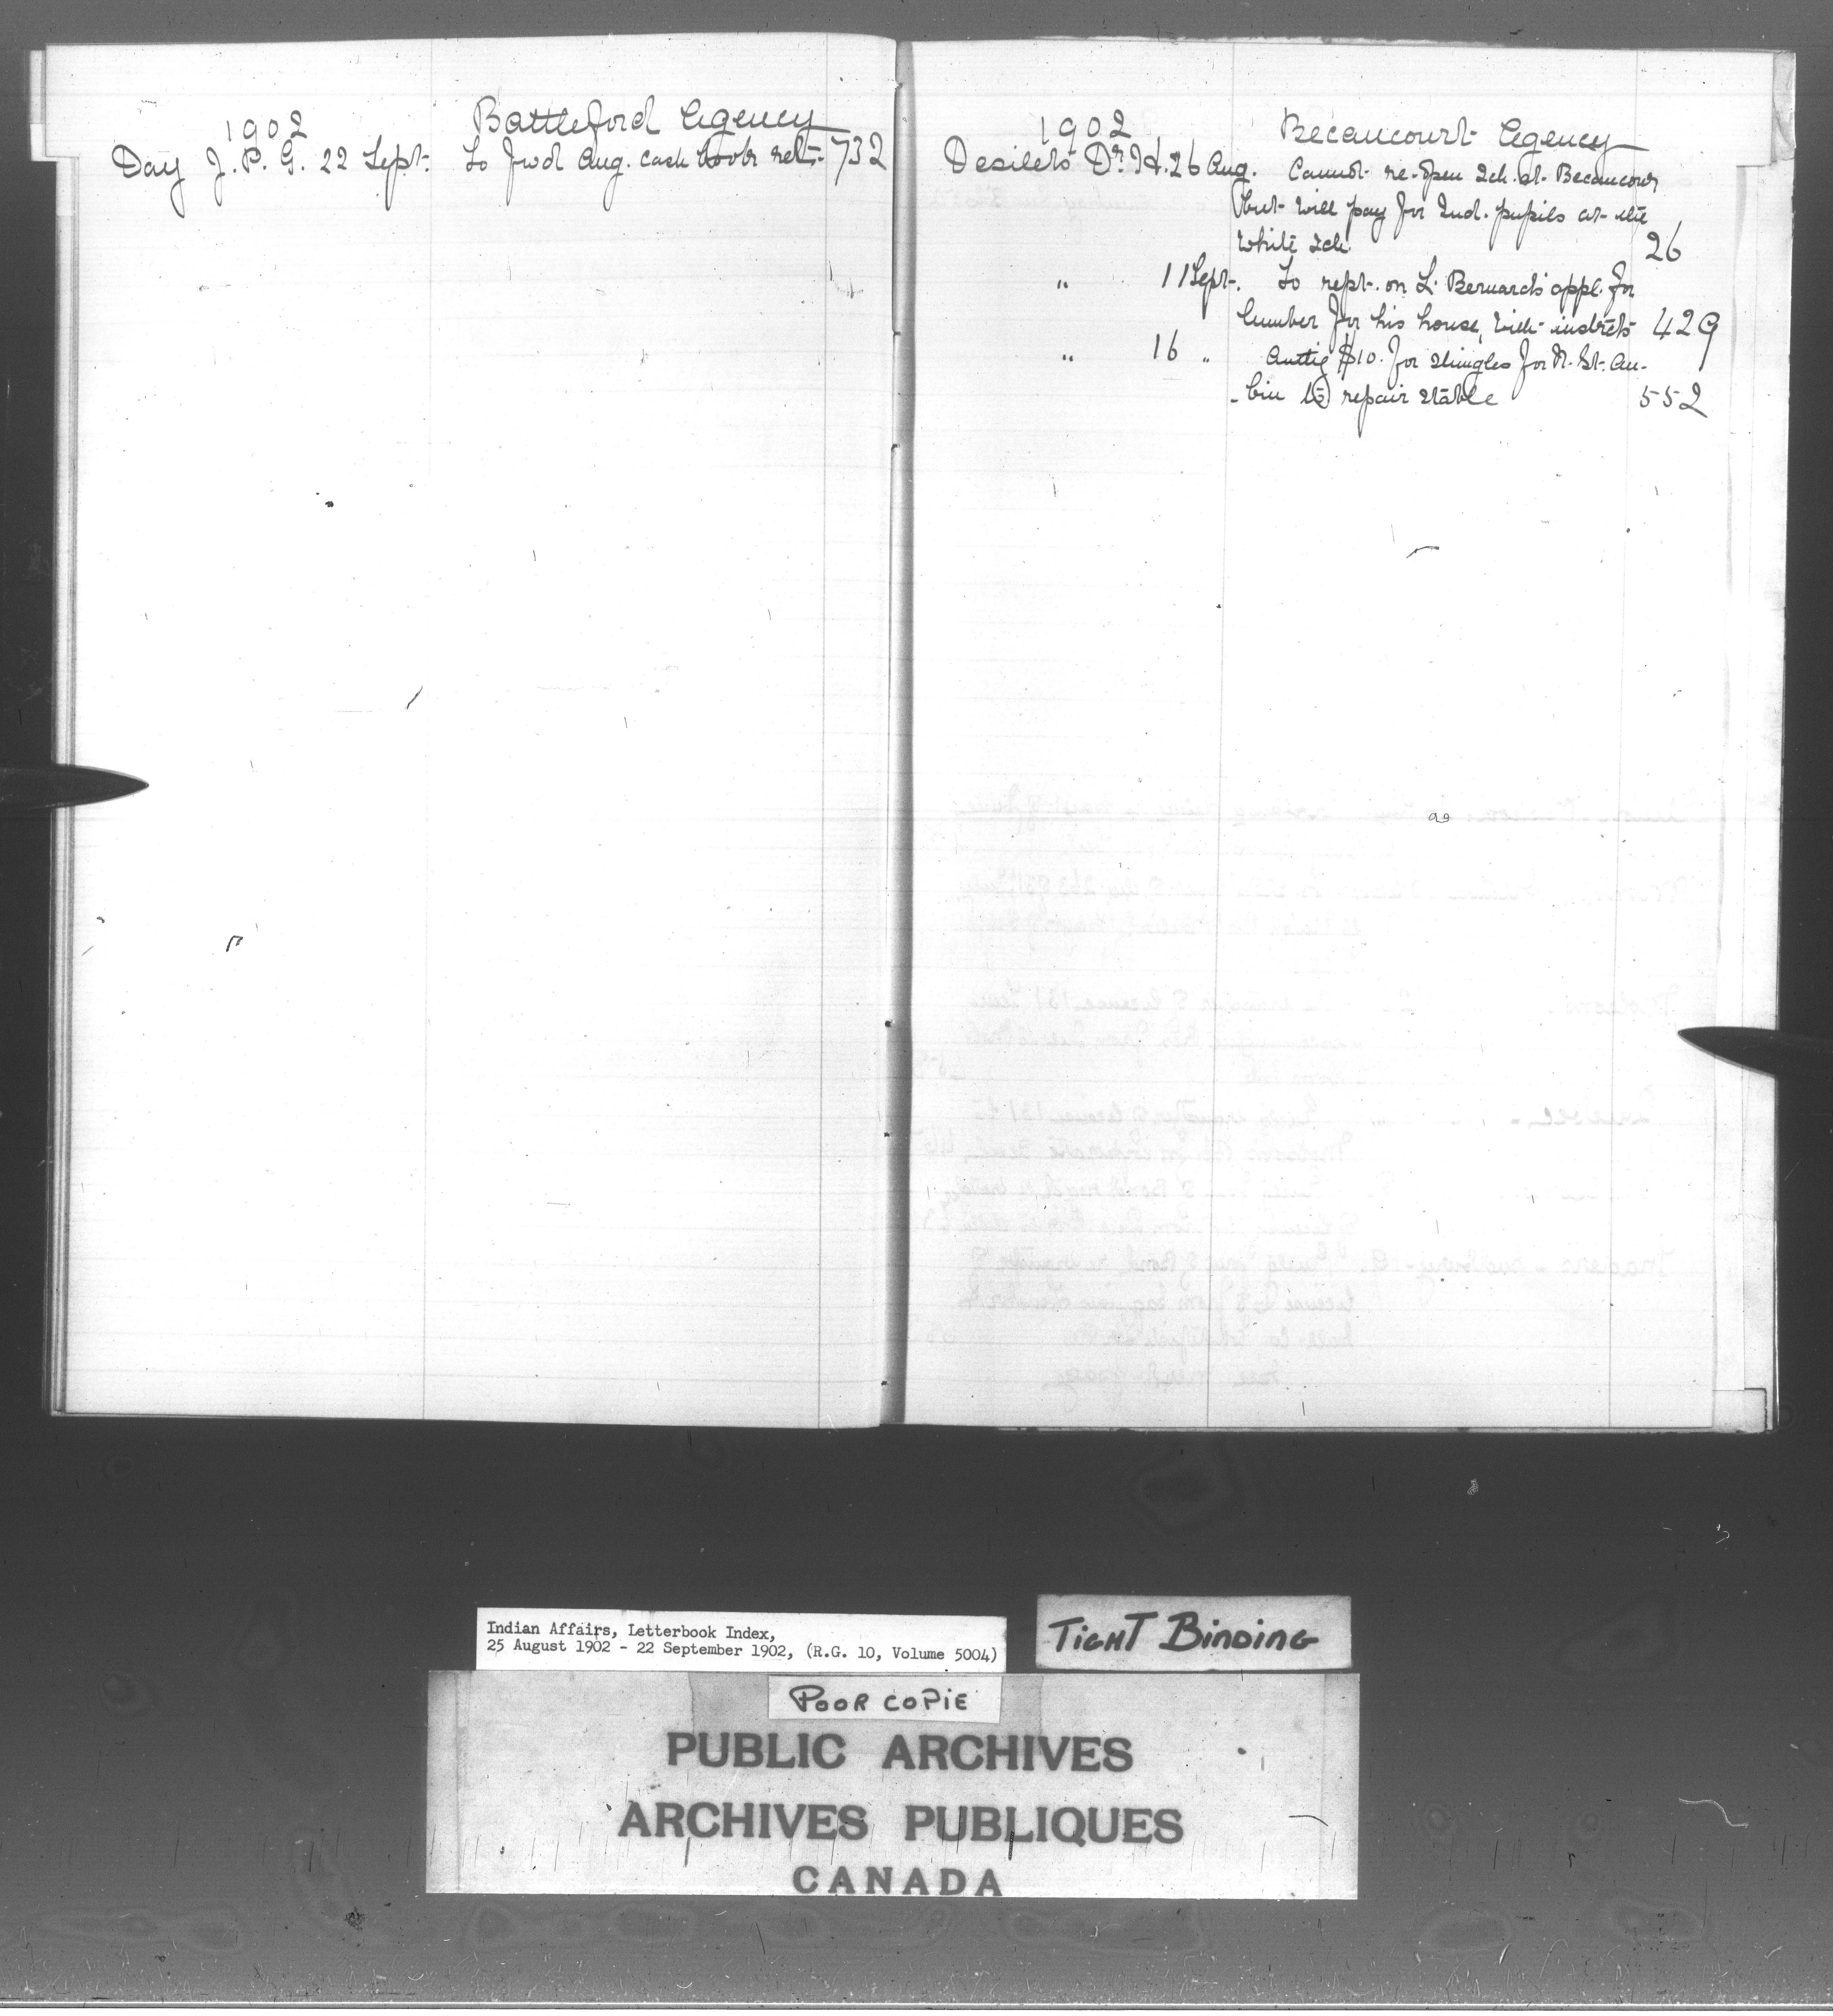 1902 Battleford Agency
Day J. P. G. 22 Sept. To fwd Aug. cash book ret. 732
1902 Becancourt Agency
Desilets Dr. H. 26 Aug. Cannot re-open Sch. at Becancour
but will pay for Ind. pupils at the
White Sch. 26
" 11 Sept. To rept. on L. Bernard's appl. for
lumber for his house, with instrcts 429
" 16 " $10. for shingles for N. St. Au-
-bin to repair stable 552
Indian Affairs, Letterbook Index,
25 August 1902 - 22 September 1902, (R.G. 10, Volume 5004)
TIGHT BINDING
POOR COPIE
PUBLIC ARCHIVES
ARCHIVES PUBLIQUES
CANADA